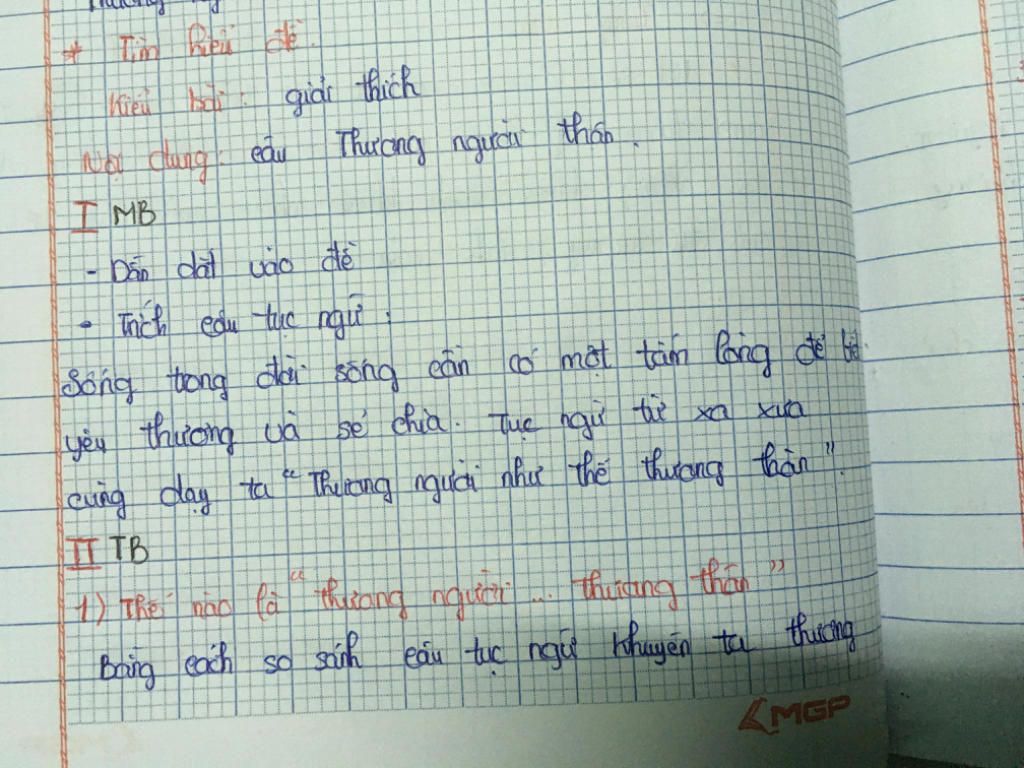 * Tìm hiểu đề.
Kiểu bài: giải thích
Nội dung: câu Thương người thân.
I MB
- Dẫn dắt vào đề
- Trích câu tục ngữ.
Sống trong đời sống cần có một tấm lòng để biết
yêu thương và sẻ chia. Tục ngữ từ xa xưa
cũng dạy ta "Thương người như thể thương thân".
II TB
1) Thế nào là "thương người... thương thân"
Bằng cách so sánh câu tục ngữ khuyên ta thương
MGP